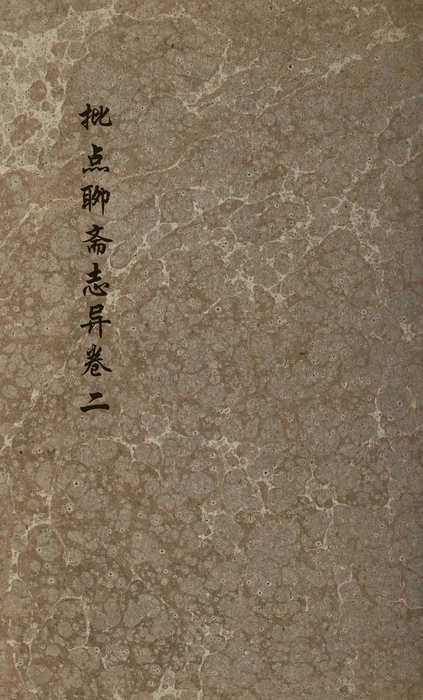 批点聊斋志异卷二